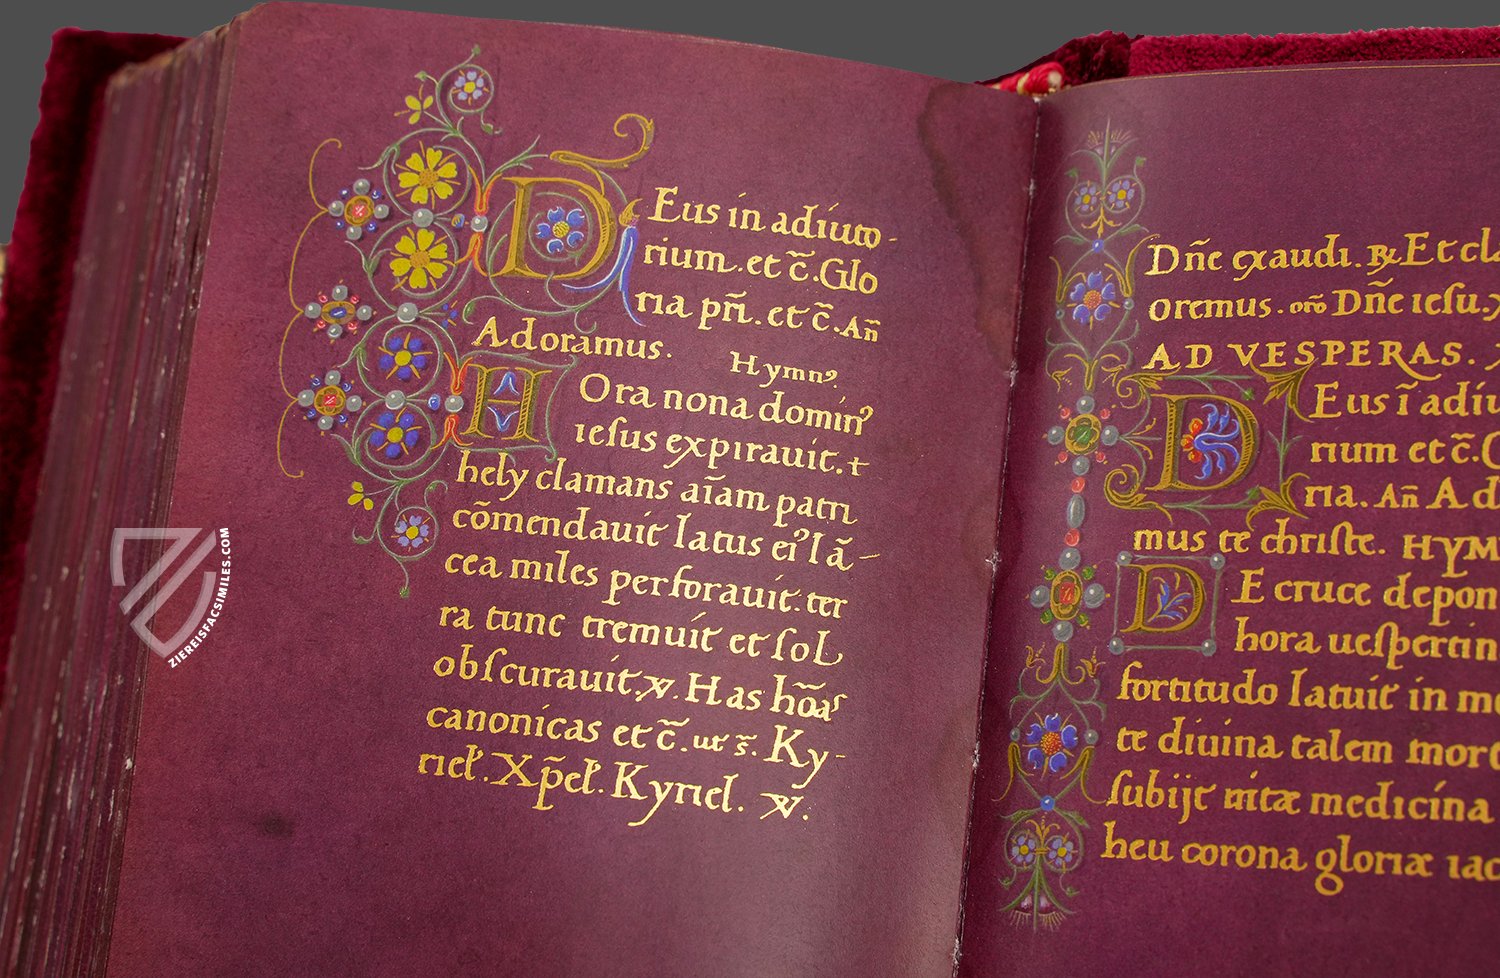 DEus in adiuto-
rium. et c̃. Glo
ria pr̃i. et c̃. An̄
Adoramus.
Hymnꝰ.
HOra nona dominꝰ
ieſus expirauit. +
hely clamans aīam patri
cõmendauit latus eiꝰ lã-
cea miles perforauit. ter
ra tunc tremuit et ſol
obſcurauit. ℣. Has hōas
canonicas et c̃. ut s̃. Ky-
rieł. Xp̄eł. Kyriel. ℣.
Dñe exaudi. ℞. Et cla
oremus. orō Dñe ieſu.
AD VESPERAS.
DEus ī adiu
rium et c̃. G
ria. An̄ Ad
mus te chriſte. HYM
DE cruce depon
hora ueſpertin
fortitudo latuit in me
te diuina talem mort
ſubijt uitæ medicina
heu corona gloriæ iac
ZIEREISFACSIMILES.COM